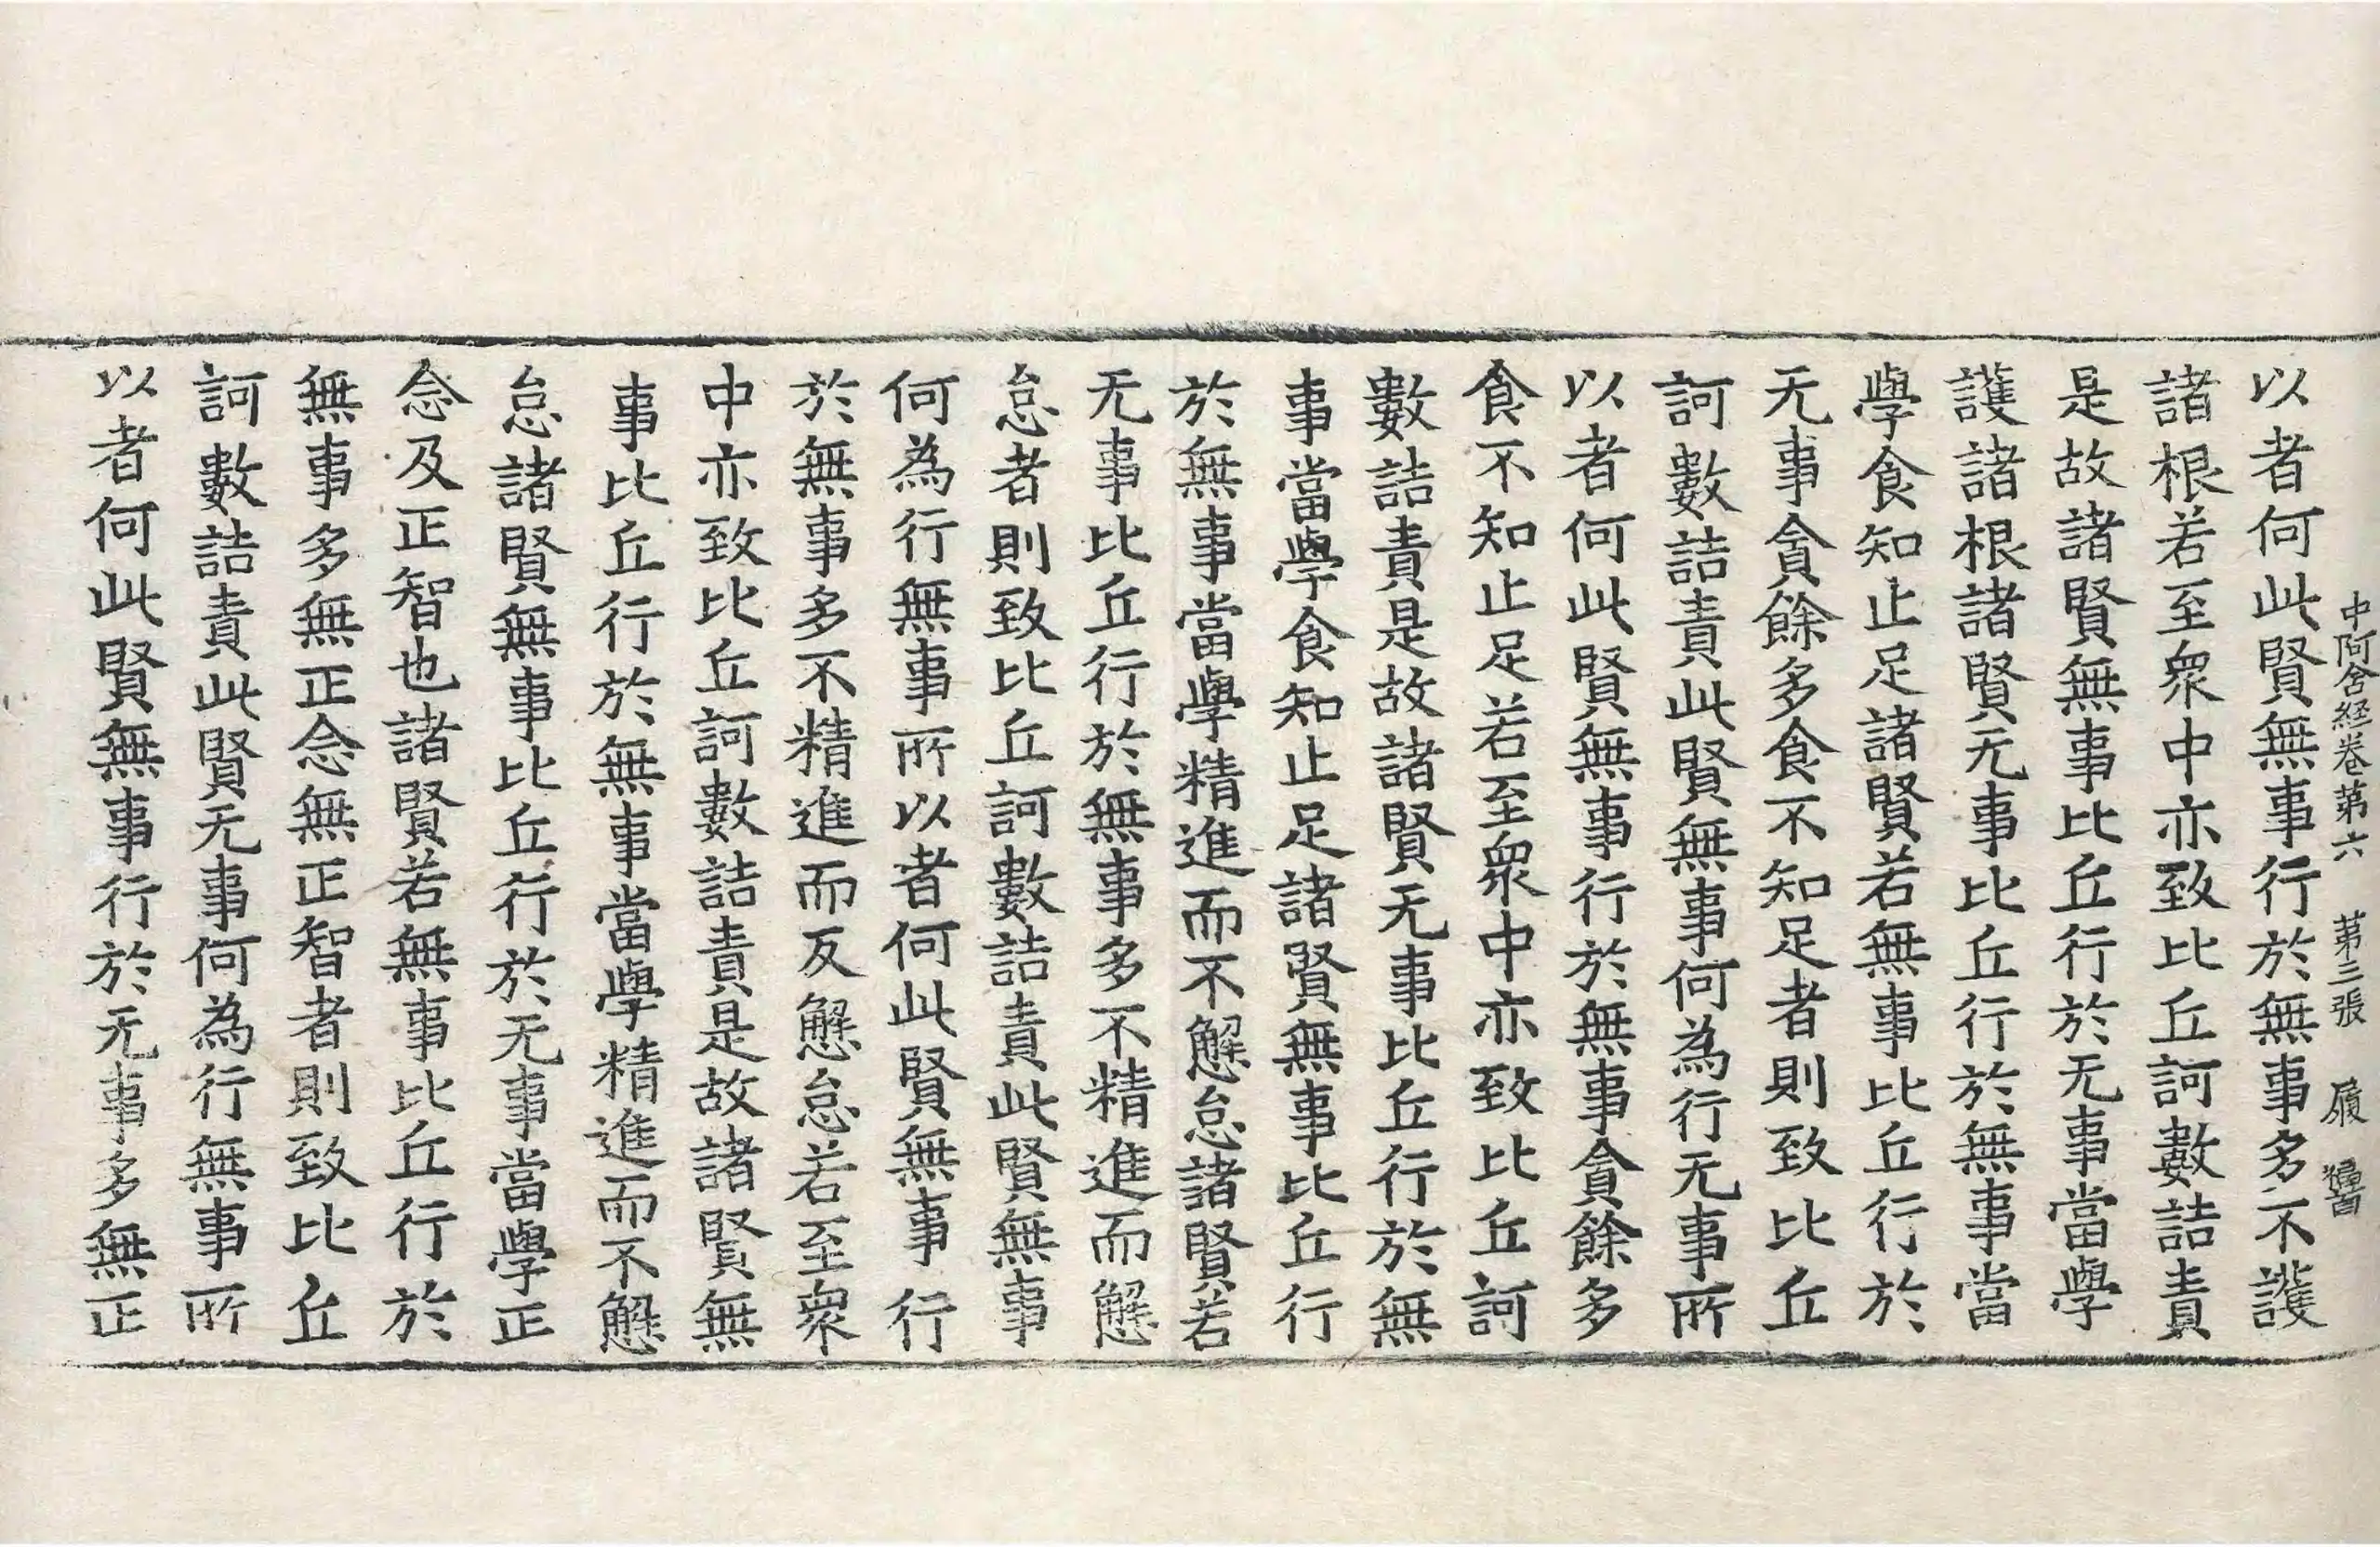 中阿含経卷第六　第三張　履
以者何此賢無事行於無事多不護
諸根若至衆中亦致比丘訶數詰責
是故諸賢無事比丘行於无事當學
護諸根諸賢无事比丘行於無事當
學食知止足諸賢若無事比丘行於
无事貪餘多食不知足者則致比丘
訶數詰責此賢無事何為行无事所
以者何此賢無事行於無事貪餘多
食不知止足若至衆中亦致比丘訶
數詰責是故諸賢无事比丘行於無
事當學食知止足諸賢無事比丘行
於無事當學精進而不懈怠諸賢若
无事比丘行於無事多不精進而懈
怠者則致比丘訶數詰責此賢無事
何為行無事所以者何此賢無事行
於無事多不精進而反懈怠若至衆
中亦致比丘訶數詰責是故諸賢無
事比丘行於無事當學精進而不懈
怠諸賢無事比丘行於无事當學正
念及正智也諸賢若無事比丘行於
無事多無正念無正智者則致比丘
訶數詰責此賢无事何為行無事所
以者何此賢無事行於无事多無正